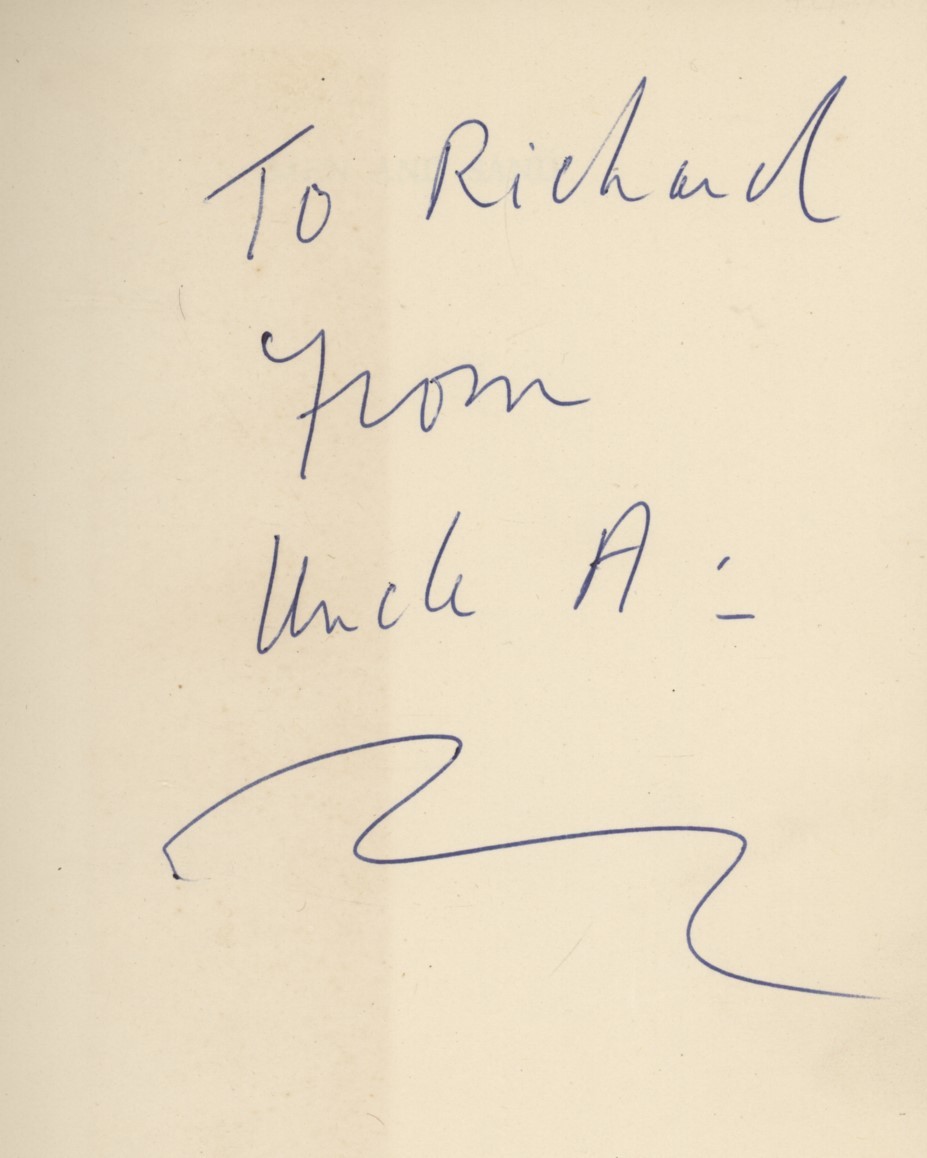 To Richard
From
Uncle A :